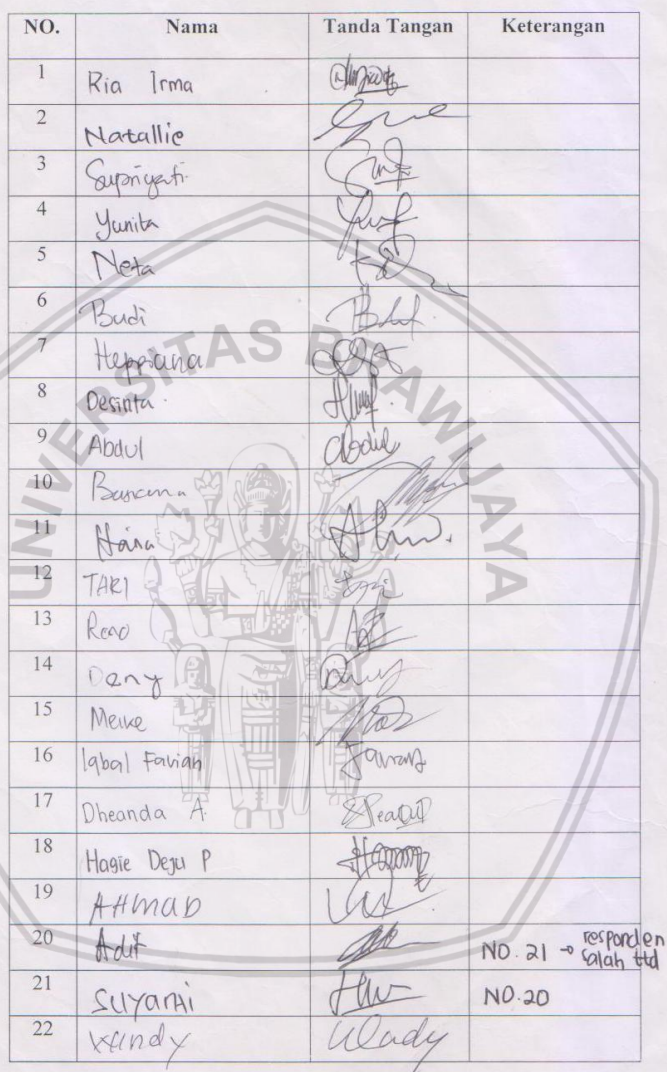 NO. Nama Tanda Tangan Keterangan
1 Ria Irma
2 Natallie
3 Supriyati
4 Yunita
5 Neta
6 Budi
7 Heppiana
8 Desinta
9 Abdul Abdul
10
11 Hana
12 TARI Tari
13 Reno
14 Deny Deny
15 Meike
16 Iqbal Favian
17 Dheanda A.
18 Hagie Deju P
19 AHMAD
20 Adit NO. 21 → responden
salah ttd
21 SUYATNI NO.20
22 Wandy Wandy
UNIVERSITAS BRAWIJAYA